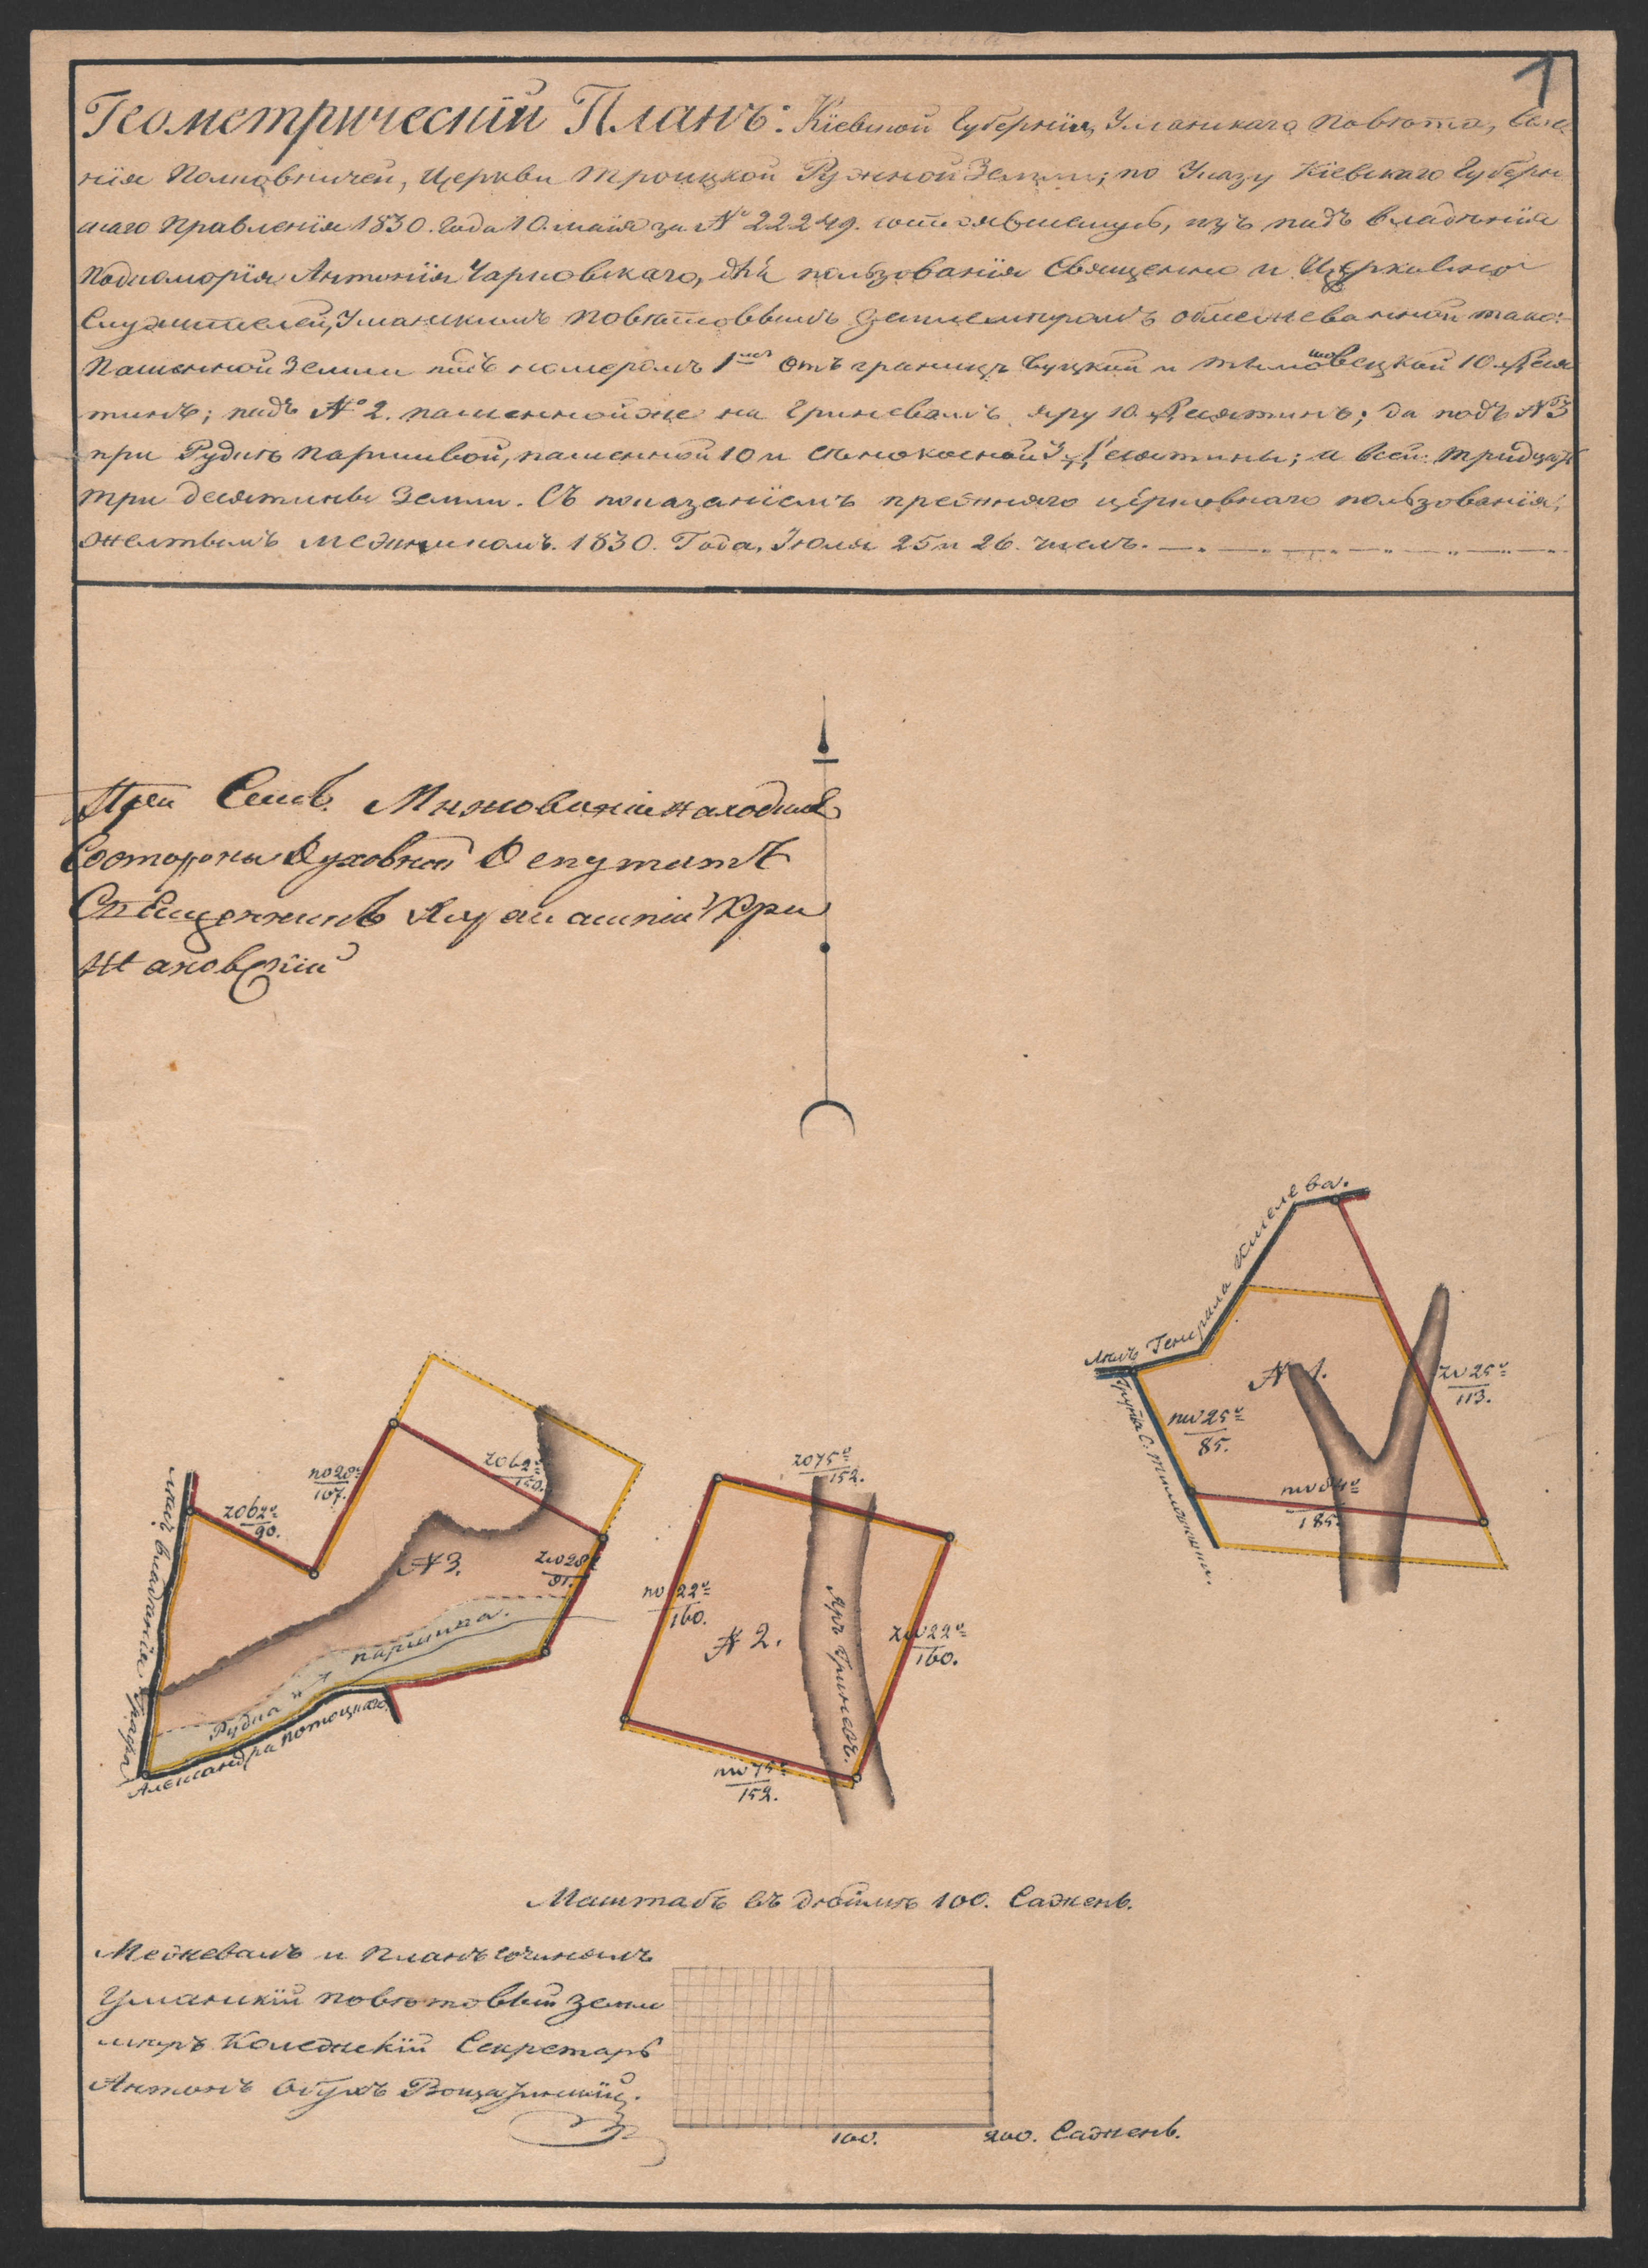 1
Геометрическій Планъ: Кіевской Губерніи, Уманскаго Повѣта, Селе
нія Полковничей, Церкви Троицкой Ружной Земли; по Указу Кіевскаго Губерн
скаго Правленія 1830. Года 10. маія за № 22249. состоявшемуся, изъ подъ владѣнія
Подкоморія Антонія Чарковскаго, для пользованія Священно и Церковно
Служителей, Уманскимъ Повѣтовымъ Землемѣромъ обмежеванной тако:
Пашенной Земли подъ номеромъ 1мъ отъ границъ Буцкой и 10 Деся
тинъ; подъ № 2. пашенной же на Гриневомъ яру 10 Десятинъ; да подъ № 3
при Рудкѣ Паршивой, пашенной 10 и Сѣнокосной 3 Десятины; а всей тридцать
три десятины Земли. Съ показаніемъ прежняго церковнаго пользованія,
желтымъ 1830. Года, Іюля 25 и 26. числъ.
При Семъ Межованіи находился
Состороны Духовной Депутатъ
Священникъ Кри
жановскій
Генерала Киселева.
Грунта С.
№ 1.
nw 25°
85.
zw 25°
113.
nw 84°
185.
no 28°
107.
zo 62°
90.
zo 62°
150.
zw 28°
81.
№ 3.
Рудка паршива.
владѣнія Графа
Александра Потоцкаго
zo 75°
152.
nw 22°
160.
№ 2.
Яръ Гриневъ.
zw 22°
160.
nw 75°
152.
Маштабъ въ дюймѣ 100. Сажень.
Межевалъ и Планъ сочинялъ
Уманскій повѣтовый земле
мѣръ Коллежскій Секретарь
Антонъ
100. 200. Сажень.